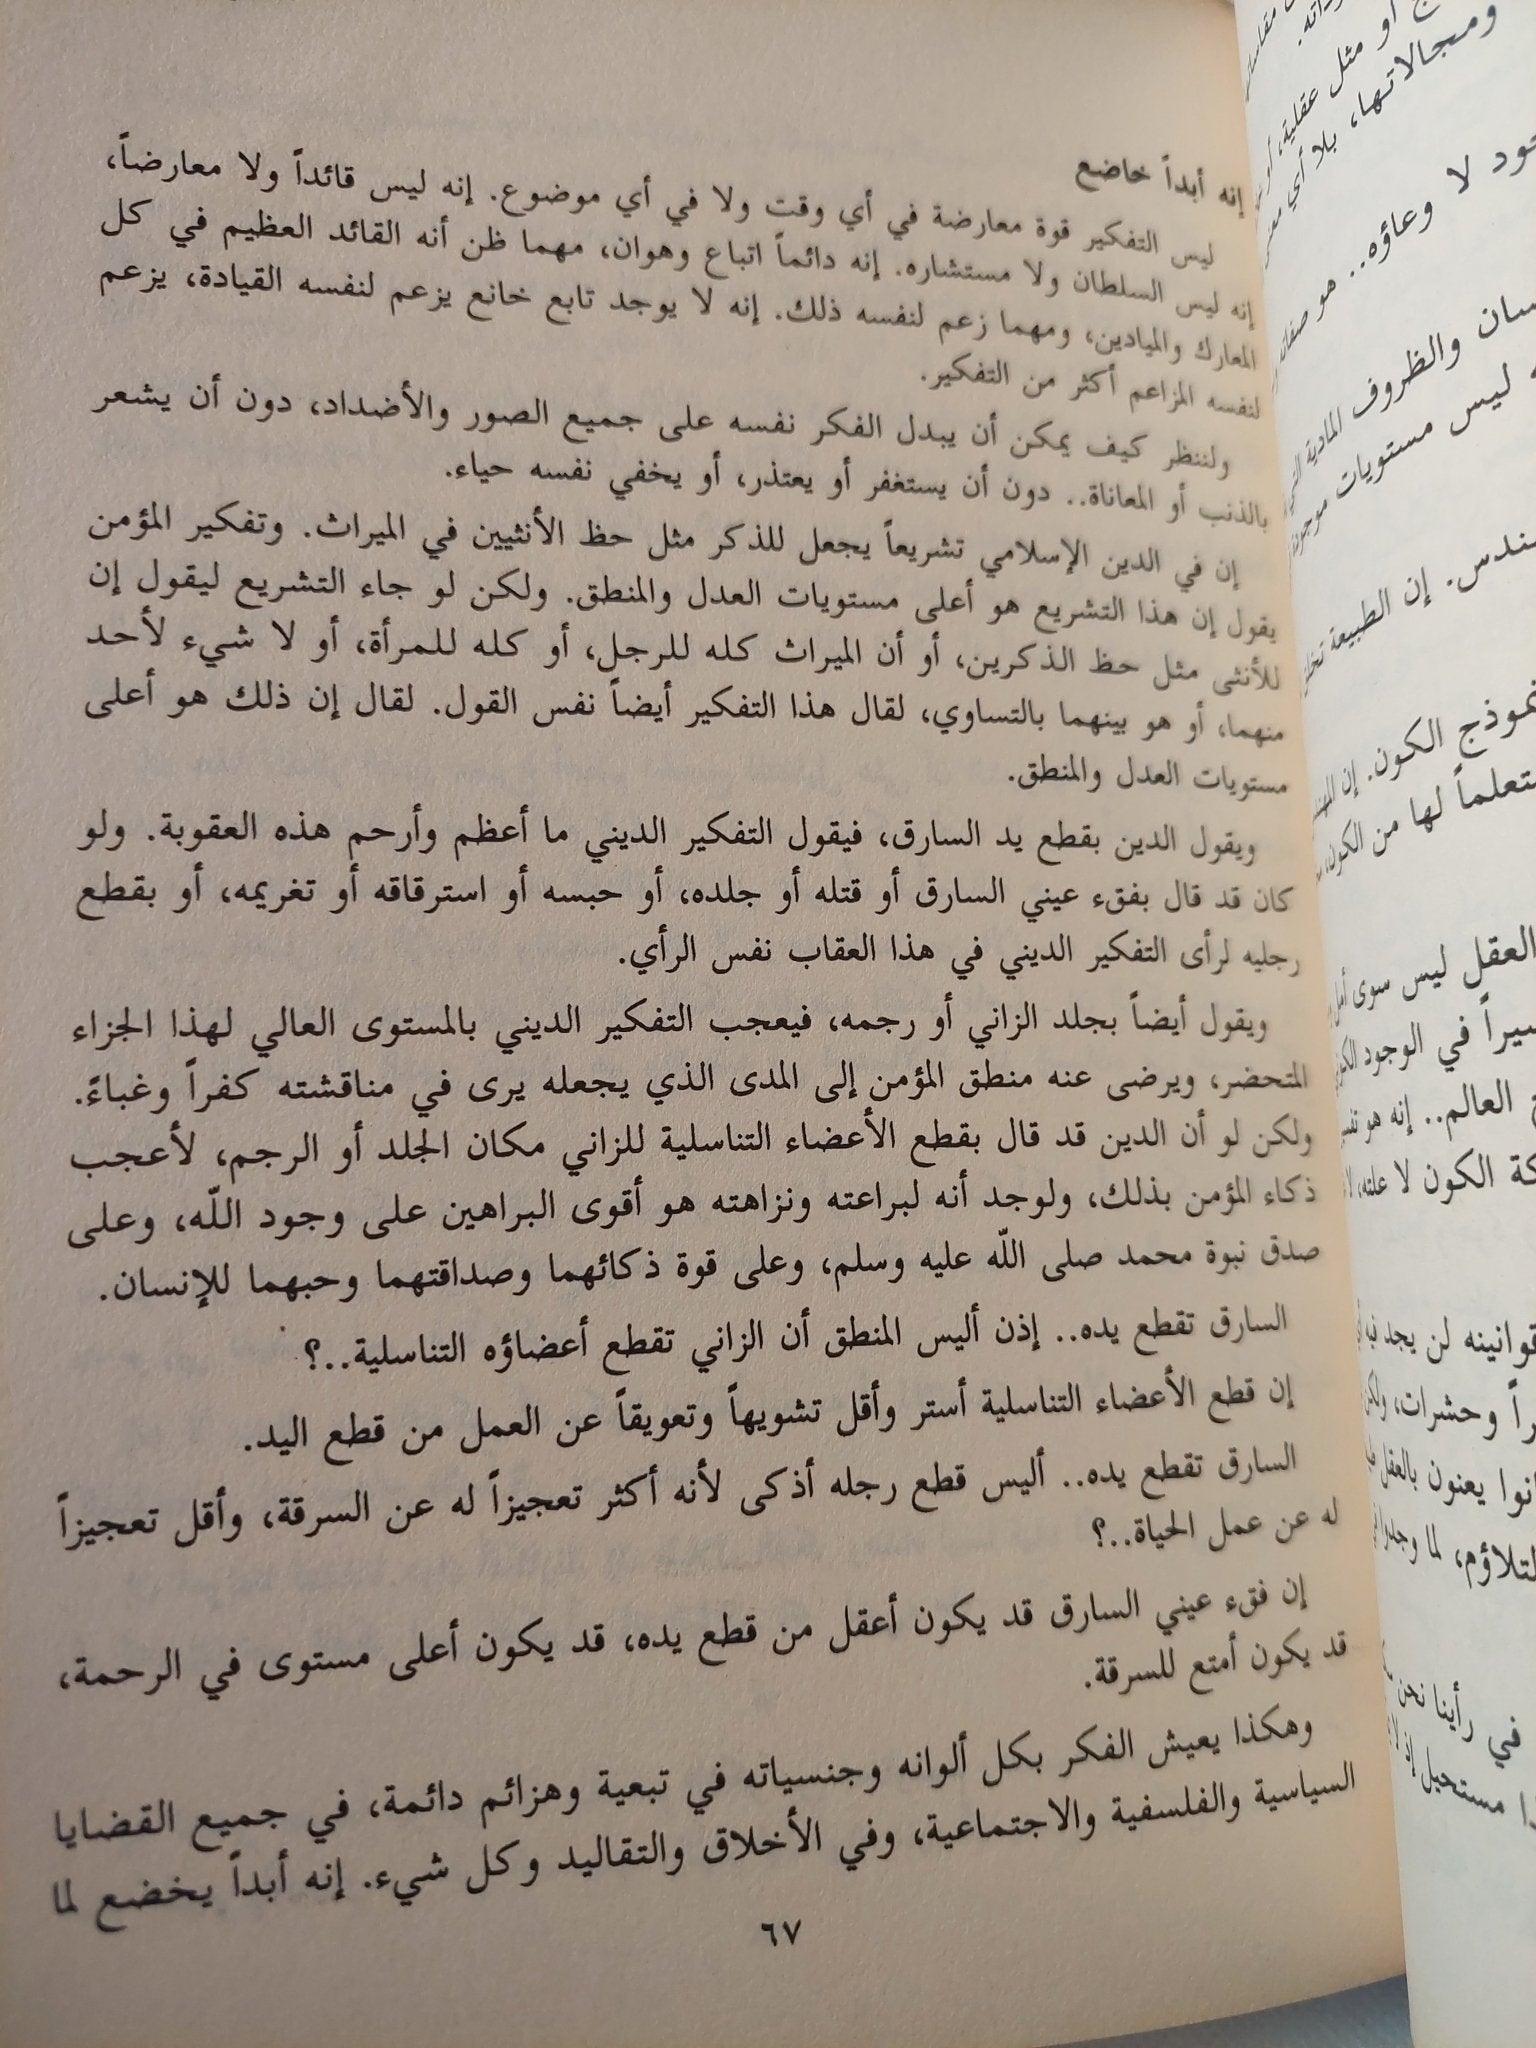 إنه أبداً خاضع
ليس التفكير قوة معارضة في أي وقت ولا في أي موضوع. إنه ليس قائداً ولا معارضاً،
إنه ليس السلطان ولا مستشاره. إنه دائماً اتباع وهوان، مهما ظن أنه القائد العظيم في كل
المعارك والميادين، ومهما زعم لنفسه ذلك. إنه لا يوجد تابع خانع يزعم لنفسه القيادة، يزعم
لنفسه المزاعم أكثر من التفكير.
ولننظر كيف يمكن أن يبدل الفكر نفسه على جميع الصور والأضداد، دون أن يشعر
بالذنب أو المعاناة.. دون أن يستغفر أو يعتذر، أو يخفي نفسه حياء.
إن في الدين الإسلامي تشريعاً يجعل للذكر مثل حظ الأنثيين في الميراث. وتفكير المؤمن
يقول إن هذا التشريع هو أعلى مستويات العدل والمنطق. ولكن لو جاء التشريع ليقول إن
للأنثى مثل حظ الذكرين، أو أن الميراث كله للرجل، أو كله للمرأة، أو لا شيء لأحد
منهما، أو هو بينهما بالتساوي، لقال هذا التفكير أيضاً نفس القول. لقال إن ذلك هو أعلى
مستويات العدل والمنطق.
ويقول الدين بقطع يد السارق، فيقول التفكير الديني ما أعظم وأرحم هذه العقوبة. ولو
كان قد قال بفقء عيني السارق أو قتله أو جلده، أو حبسه أو استرقاقه أو تغريمه، أو بقطع
رجليه لرأى التفكير الديني في هذا العقاب نفس الرأي.
ويقول أيضاً بجلد الزاني أو رجمه، فيعجب التفكير الديني بالمستوى العالي لهذا الجزاء
المتحضر، ويرضى عنه منطق المؤمن إلى المدى الذي يجعله يرى في مناقشته كفراً وغباءً.
ولكن لو أن الدين قد قال بقطع الأعضاء التناسلية للزاني مكان الجلد أو الرجم، لأعجب
ذكاء المؤمن بذلك، ولوجد أنه لبراعته ونزاهته هو أقوى البراهين على وجود اللّه، وعلى
صدق نبوة محمد صلى اللّه عليه وسلم، وعلى قوة ذكائهما وصداقتهما وحبهما للإنسان.
السارق تقطع يده.. إذن أليس المنطق أن الزاني تقطع أعضاؤه التناسلية..؟
إن قطع الأعضاء التناسلية أستر وأقل تشويهاً وتعويقاً عن العمل من قطع اليد.
السارق تقطع يده.. أليس قطع رجله أذكى لأنه أكثر تعجيزاً له عن السرقة، وأقل تعجيزاً
له عن عمل الحياة..؟
إن فقء عيني السارق قد يكون أعقل من قطع يده، قد يكون أعلى مستوى في الرحمة،
قد يكون أمتع للسرقة.
وهكذا يعيش الفكر بكل ألوانه وجنسياته في تبعية وهزائم دائمة، في جميع القضايا
السياسية والفلسفية والاجتماعية، وفي الأخلاق والتقاليد وكل شيء. إنه أبداً يخضع لما
٦٧
أو مثل عقلية، أو
ومجالاتها، بلا أي
لا وعاؤه.. هو
والظروف المادية
ليس مستويات
إن الطبيعة
نموذج الكون. إن
لها من الكون،
العقل ليس سوى
في الوجود
العالم.. إنه هو
الكون لا علته،
قوانينه لن يجد
وحشرات،
يعنون بالعقل
لما
في رأينا نحن
مستحيل إذ